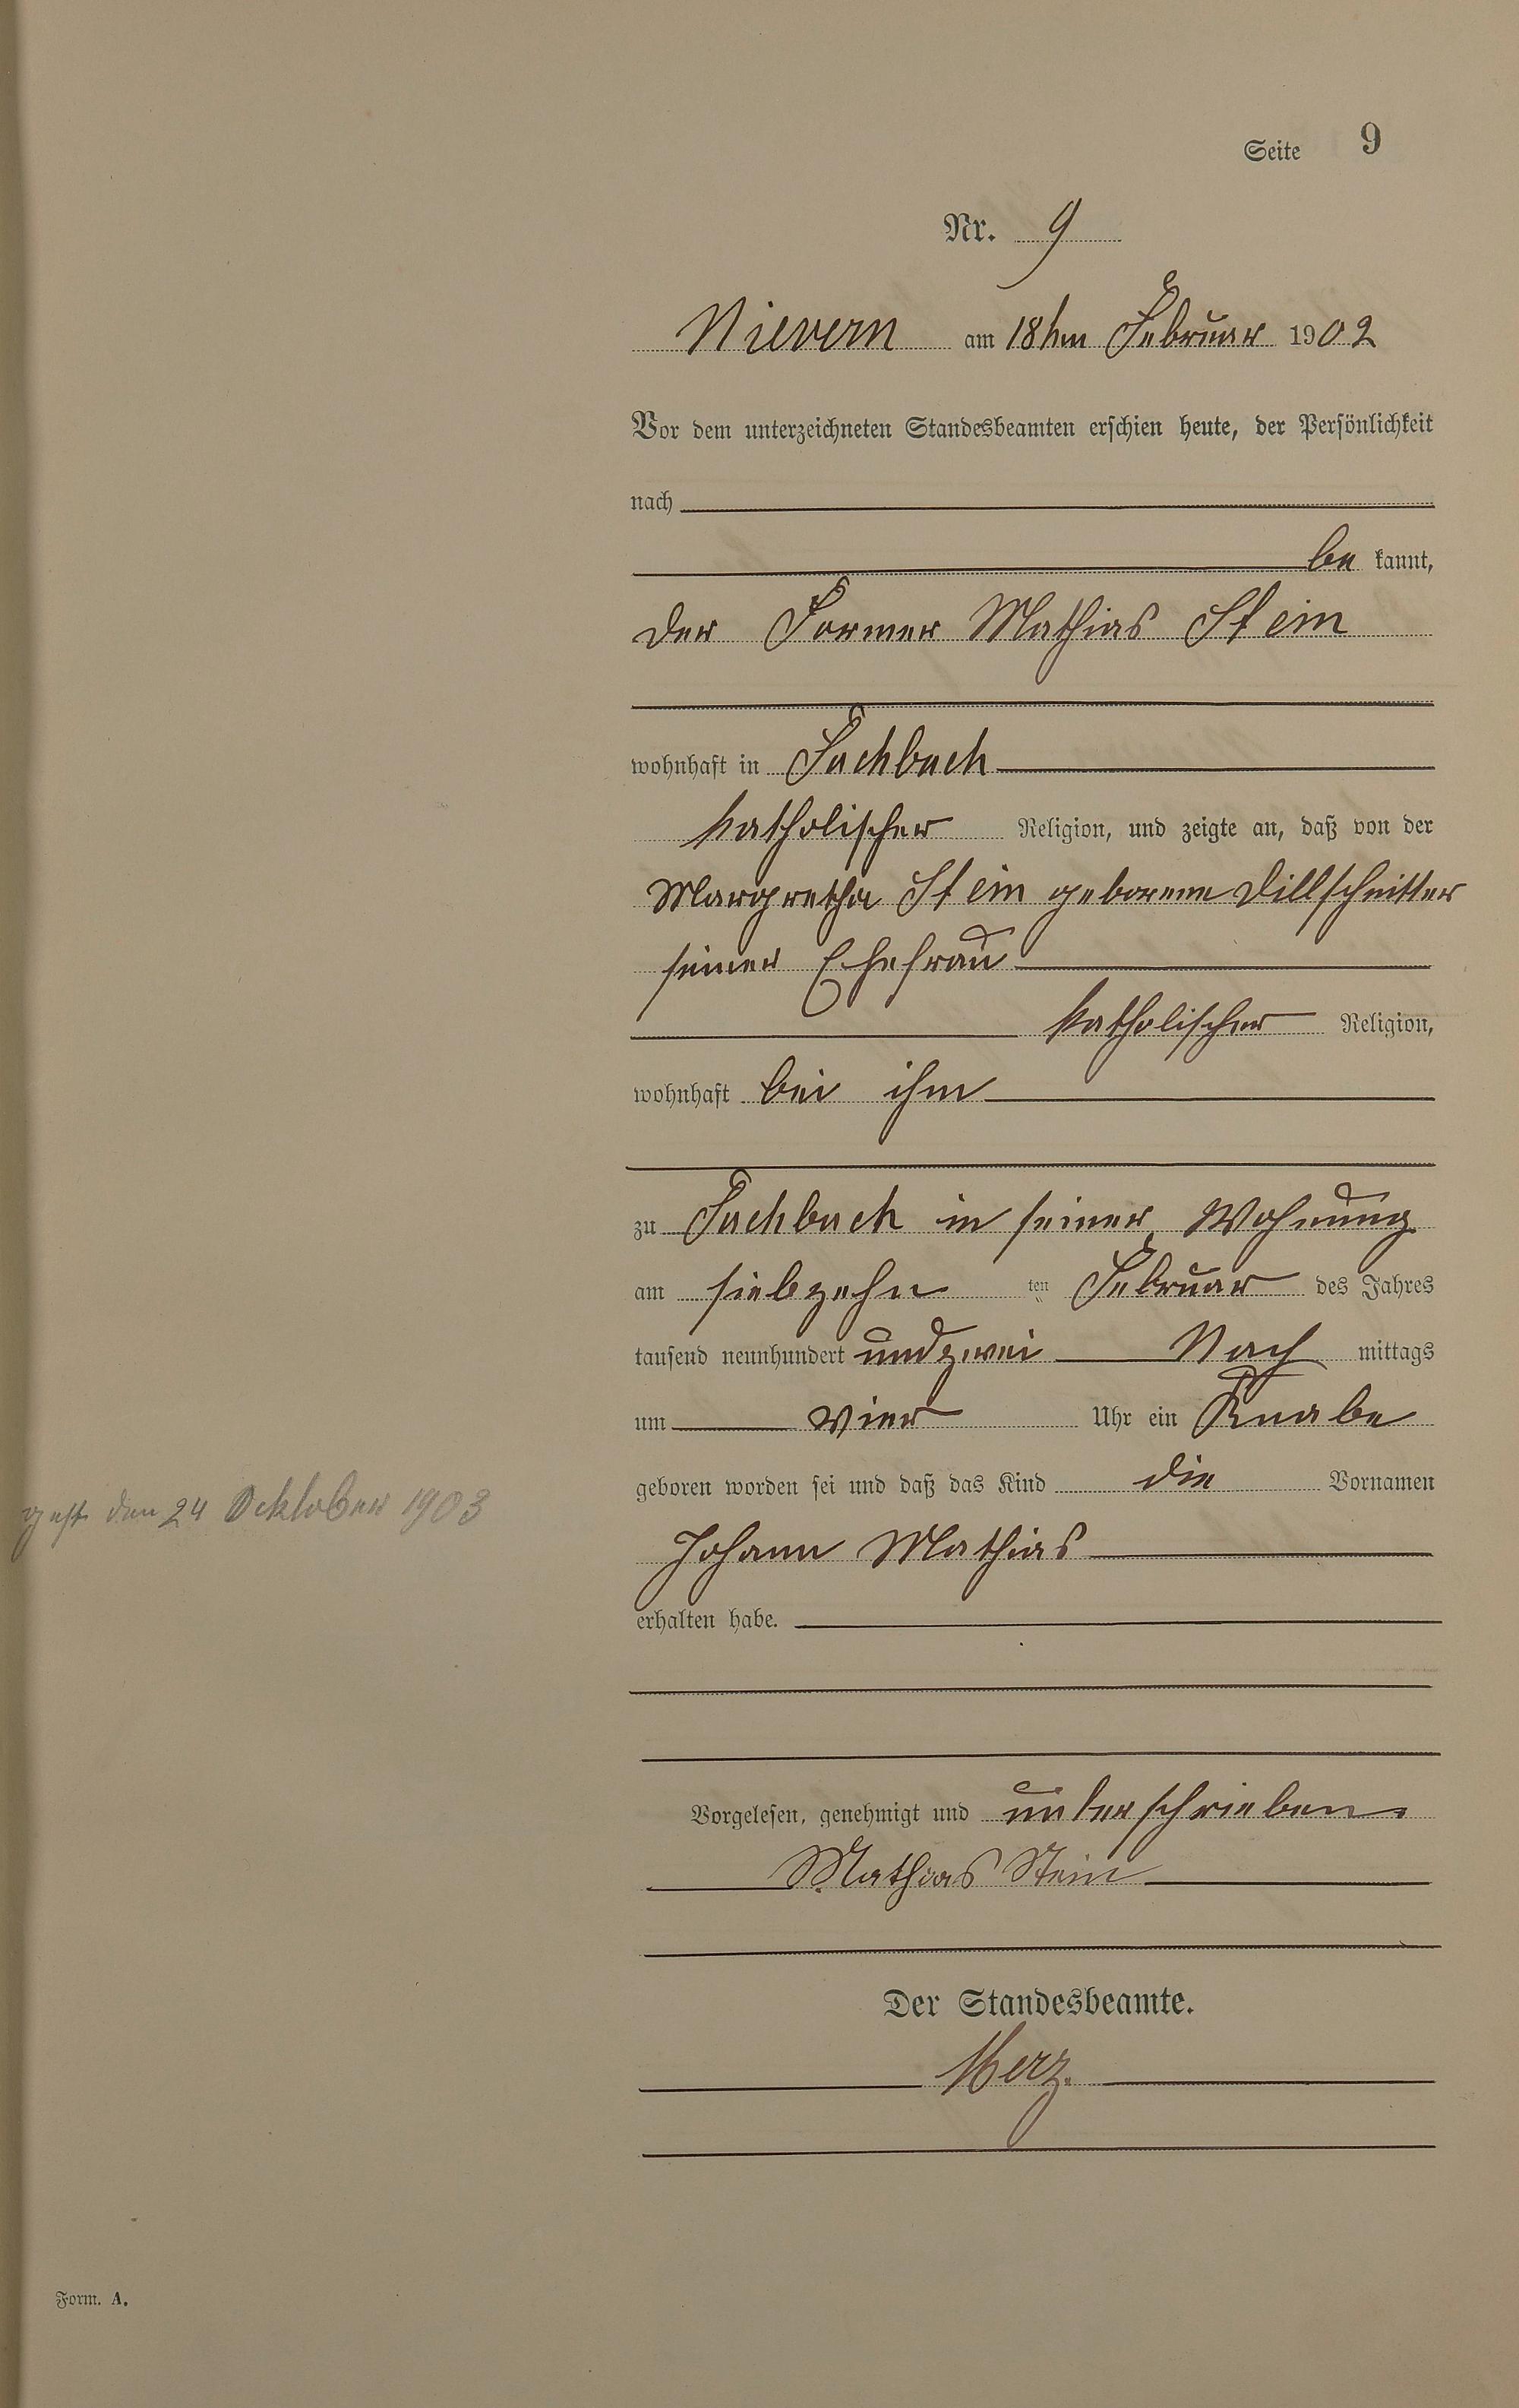 Seite 9
Nr. 9
Nievern am 18ten Februar 1902
Vor dem unterzeichneten Standesbeamten erschien heute, der Persönlichkeit
nach
be kannt,
der Former Mathias Stein
wohnhaft in Fachbach
katholischer Religion, und zeigte an, daß von der
Margretha Stein geborene Dillschnitter
seiner Ehefrau
katholischer Religion,
wohnhaft bei ihm
zu Fachbach in seiner Wohnung
am siebzehn ten Februar des Jahres
tausend neunhundert und zwei Nach mittags
um vier Uhr ein Knabe
geboren worden sei und daß das Kind die Vornamen
gest. den 24 Ocktober 1903
Johann Mathias
erhalten habe.
Vorgelesen, genehmigt und unterschrieben.
Mathias Stein
Der Standesbeamte.
Merz.
Form. A.